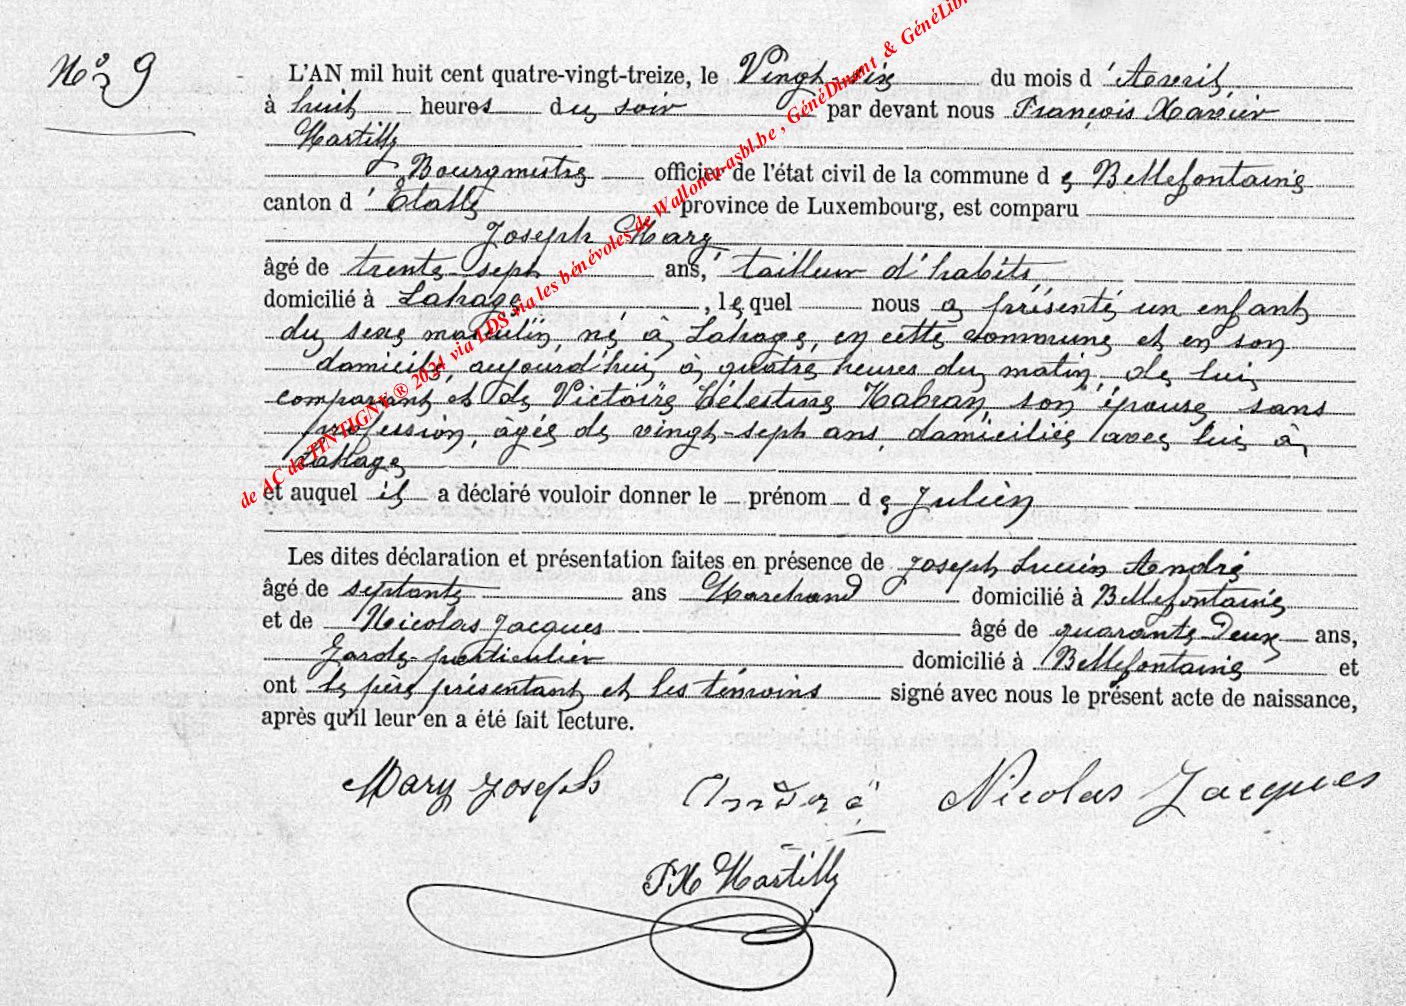 N° 9
L'AN mil huit cent quatre-vingt-treize, le Vingt-six du mois d'Avril,
à huit heures du soir par devant nous François Xavier
Martilly
Bourgmestre officier de l'état civil de la commune de Bellefontaine
canton d'Étalle province de Luxembourg, est comparu
Joseph Mary
âgé de trente-sept ans, tailleur d'habits
domicilié à Lahage, lequel nous a présenté un enfant
du sexe masculin, né à Lahage, en cette commune et en son
domicile, aujourd'hui à quatre heures du matin, de lui
comparant et de Victoire Célestine Habran, son épouse, sans
profession, âgée de vingt-sept ans, domiciliée avec lui à
Lahage
et auquel il a déclaré vouloir donner le prénom de Julien
Les dites déclaration et présentation faites en présence de Joseph Lucien André
âgé de septante ans Marchand domicilié à Bellefontaine
et de Nicolas Jacques âgé de quarante-deux ans,
Garde-particulier domicilié à Bellefontaine et
ont le père présentant et les témoins signé avec nous le présent acte de naissance,
après qu'il leur en a été fait lecture.
Mary Joseph André Nicolas Jacques
FX Martilly
de AC de TINTIGNY ® 2024 via LDS via les bénévoles de Wallonia-asbl.be, GénéDinant & GénéLibr